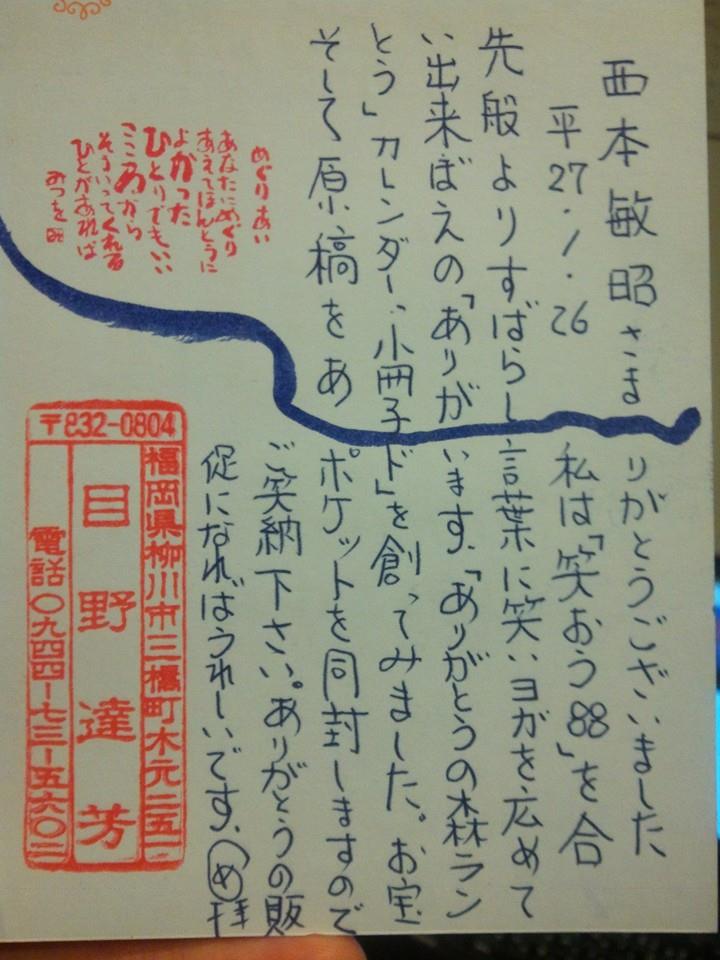 西本敏昭さま
平27.1.26
先般よりすばらし
い出来ばえの「ありが
とう」カレンダー、小冊子
そして原稿をあ
りがとうございました
私は「笑おう88」を合
言葉に笑いヨガを広めて
います、「ありがとうの森ラン
ド」を創ってみました。お宝
ポケットを同封しますので
ご笑納下さい。ありがとうの販
促になればうれしいです、
め拝
めぐりあい
あなたにめぐり
あえてほんとうに
よかった
ひとりでもいい
こころから
そういってくれる
ひとがあれば
みつを
〒832-0804
福岡県柳川市三橋町木元二五一
目野達芳
電話〇九四四-七三-五六〇二